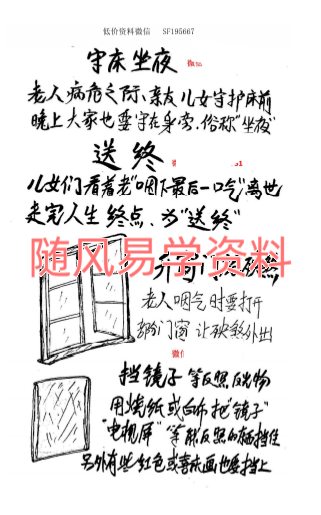 低价资料微信 SF195667
守床坐夜
老人病危之际、亲友儿女守护床前
晚上大家也要守在身旁.俗称"坐夜"
送终
儿女们看着老"咽下最后一口气"离世
走完人生终点、为"送终"
随风易学资料
老人咽气时要打开
部门窗 让殃煞外出
挡镜子等反照反光物
用烧纸或白布把"镜子"
"电视屏"等能反照的东西挡住
另外有些红色或喜庆画也要挡上